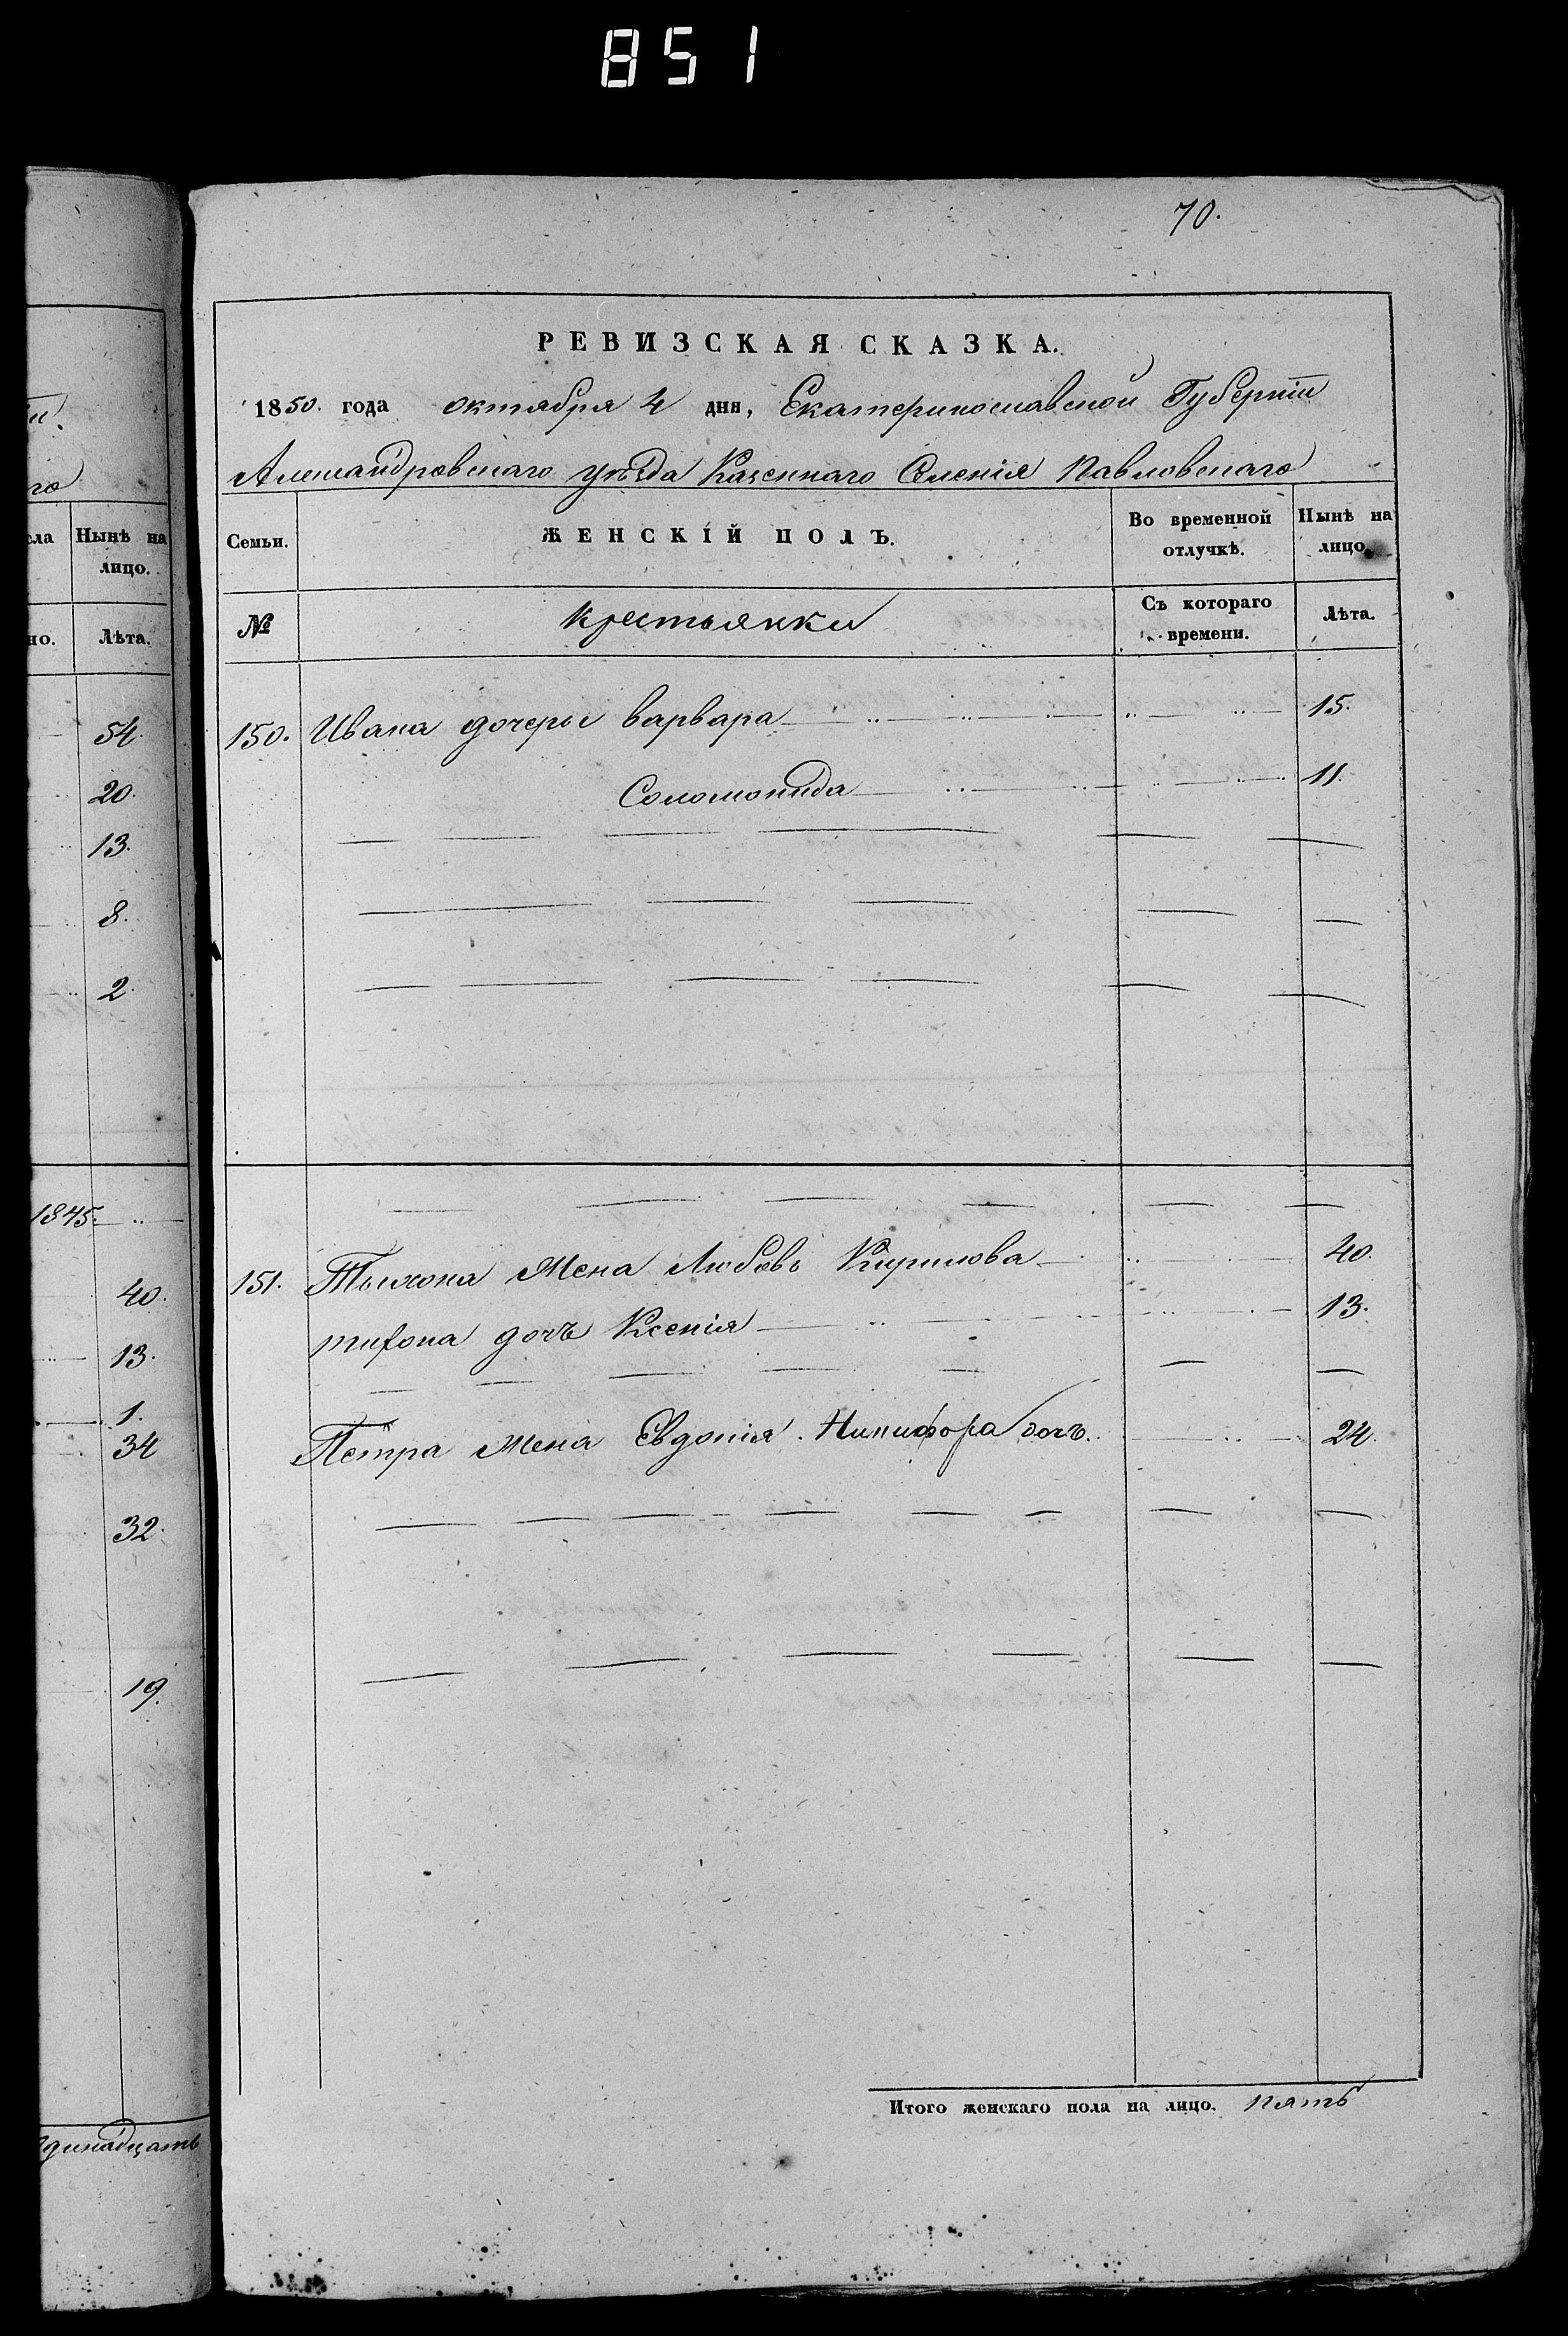 851
70.
РЕВИЗСКАЯ СКАЗКА.
1850. года октября 4 дня, Екатеринославской Губернїи
Александровскаго уѣзда Казеннаго Селенія Павловскаго
Семьи.
ЖЕНСКІЙ ПОЛЪ.
Во временной отлучкѣ.
Нынѣ на лицо.
№
крестьянки
Съ котораго времени.
Лѣта.
150. Ивана дочеры варвара 15.
Соломонида 11.
151. Тыхона жена Любовь Кирилова 40.
тифона дочь Ксенія 13.
Петра жена Евдокія. Никифора дочь. 24.
Итого женскаго пола на лицо. пять
го
ела
Нынѣ на
лицо.
но.
Лѣта.
54.
20.
13.
8.
2.
1845.
40.
13.
1.
34
32.
19.
динадцать